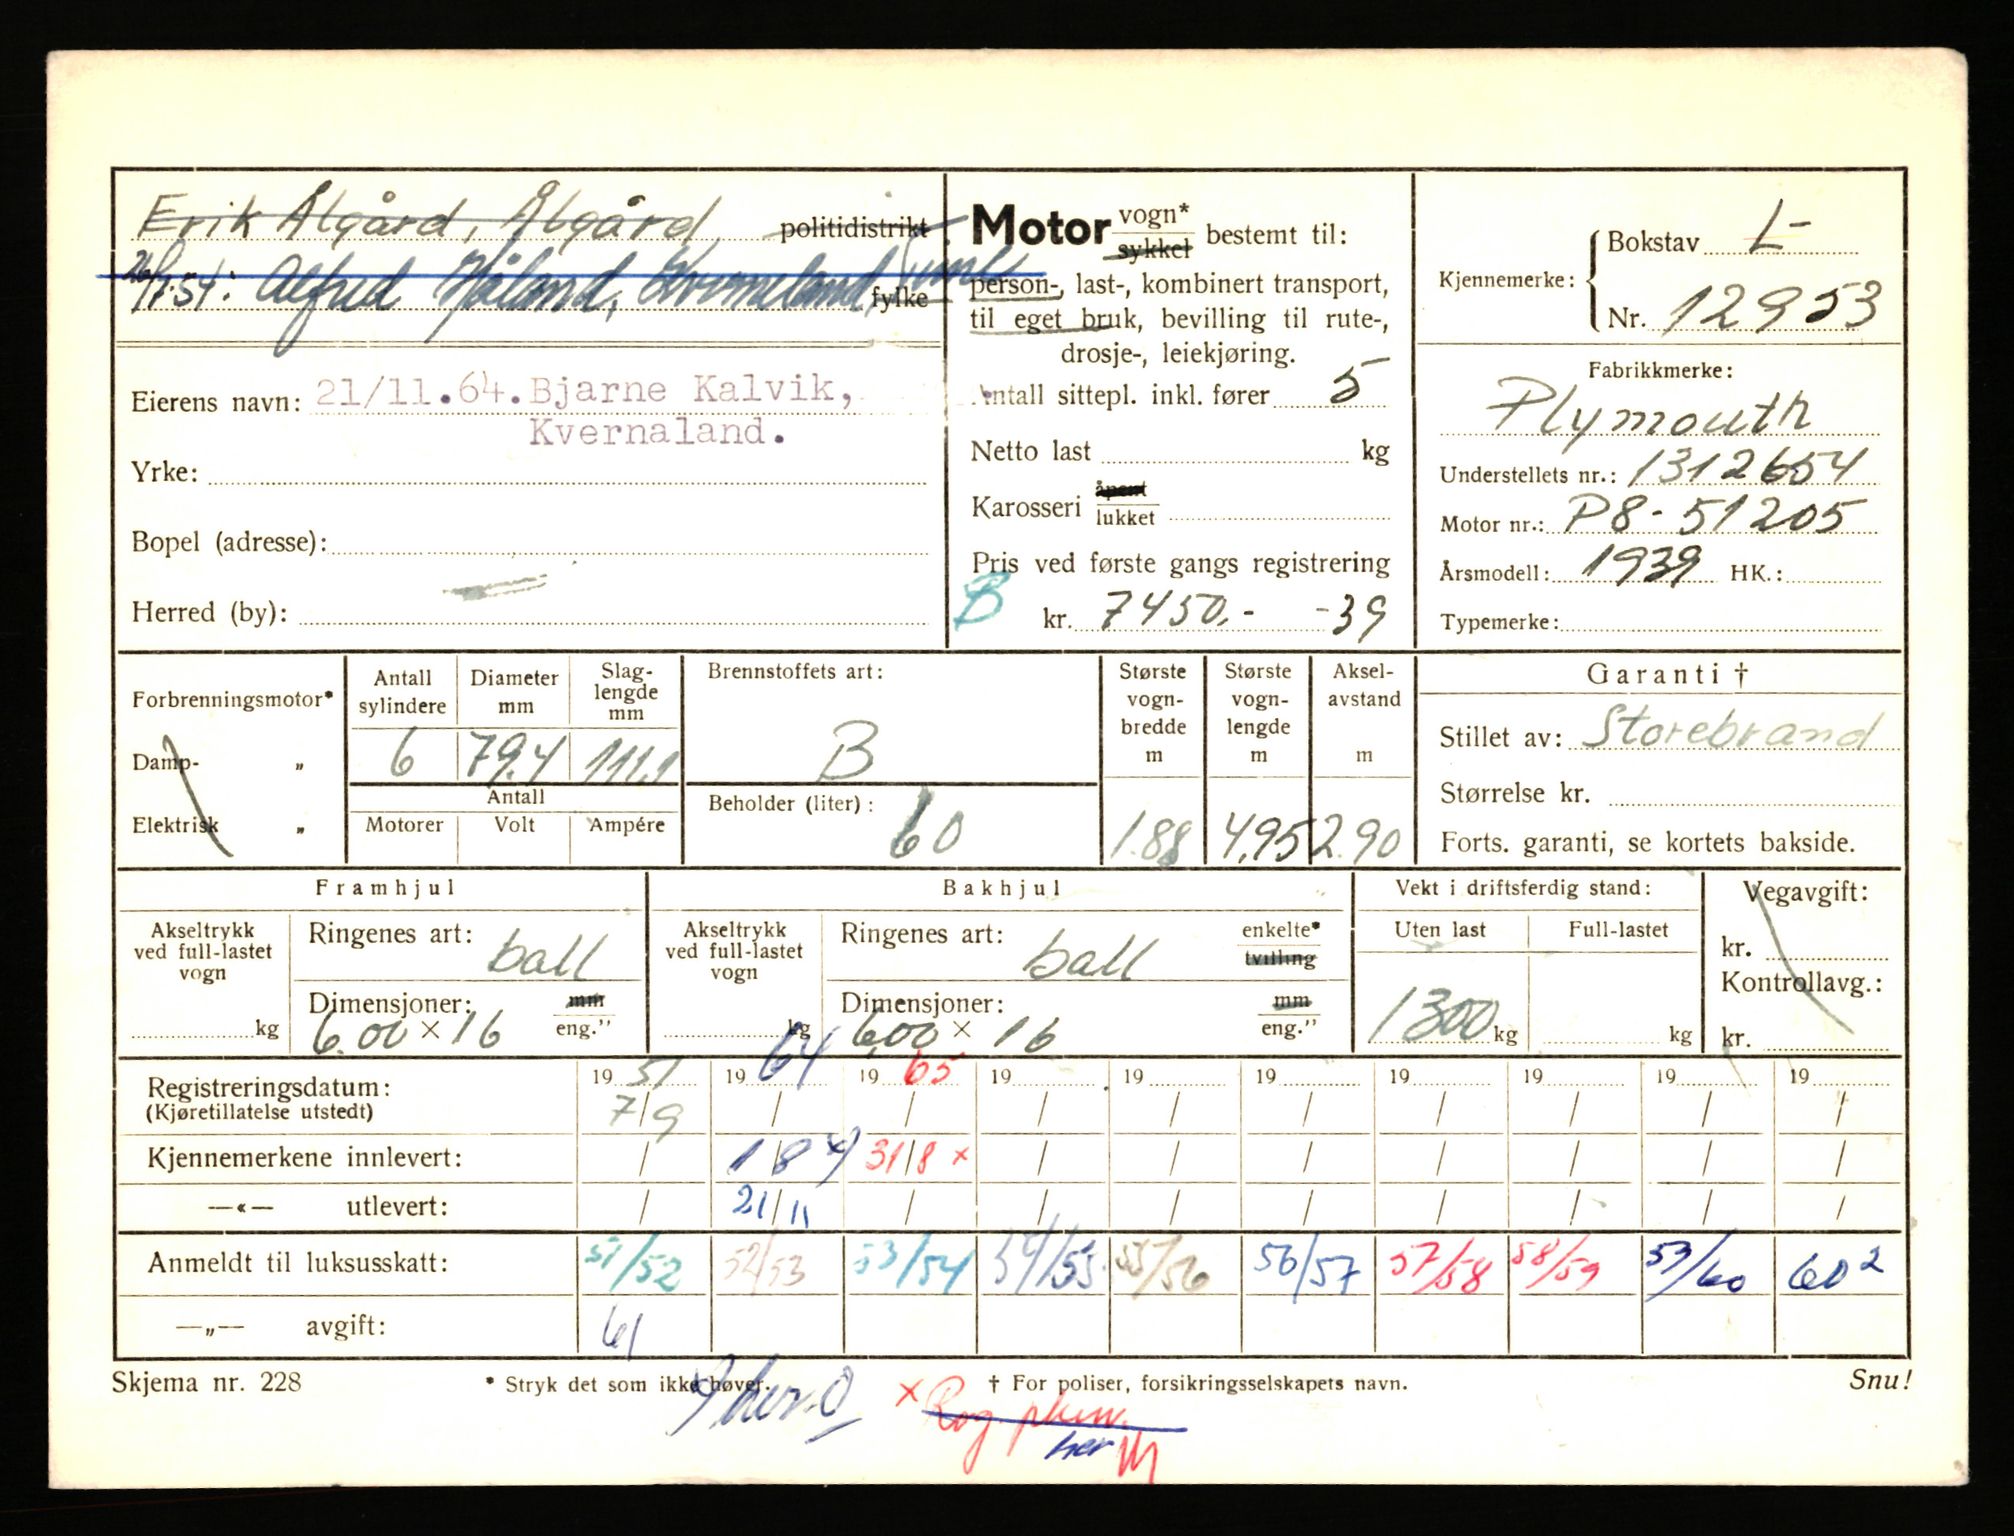 Erik Ålgård, Ålgård politidistrikt
26/11.54: Alfred Håland, fylke
Eierens navn: 21/11.64. Bjarne Kalvik,
Kvernaland.
Yrke:
Bopel (adresse):
Herred (by):
Motor vogn*
sykkel bestemt til:
person-, last-, kombinert transport,
til eget bruk, bevilling til rute-,
drosje-, leiekjøring.
Antall sittepl. inkl. fører 5
Netto last kg
Karosseri åpent
lukket
Pris ved første gangs registrering
B kr. 7450.- -39
Kjennemerke: Bokstav L-
Nr. 12953
Fabrikkmerke:
Plymouth
Understellets nr.: 1312654
Motor nr.: P8-51205
Årsmodell: 1939 HK.:
Typemerke:
Forbrenningsmotor*
Damp- „
Elektrisk „
Antall sylindere Diameter mm Slag-lengde mm
6 79.4 111,1
Antall
Motorer Volt Ampére
Brennstoffets art:
B
Beholder (liter): 60
Største vogn-bredde m Største vogn-lengde m Aksel-avstand m
1.88 4,95 2.90
Garanti †
Stillet av: Storebrand
Størrelse kr.
Forts. garanti, se kortets bakside.
Framhjul
Akseltrykk ved full-lastet vogn
kg
Ringenes art: ball
Dimensjoner: mm
6.00 × 16 eng.”
Bakhjul
Akseltrykk ved full-lastet vogn
kg
Ringenes art: ball enkelte*
tvilling
Dimensjoner: mm
6,00 × 16 eng.”
Vekt i driftsferdig stand:
Uten last Full-lastet
1300 kg kg
Vegavgift:
kr.
Kontrollavg.:
kr.
Registreringsdatum: 19 51 19 64 19 65 19 19 19 19 19 19 19
(Kjøretillatelse utstedt) 7/9 / / / / / / / / /
Kjennemerkene innlevert: / 1/8 31/8 × / / / / / / /
—«— utlevert: / 21/11 / / / / / / / /
Anmeldt til luksusskatt: 51/52 52/53 53/54 54/55 55/56 56/57 57/58 58/59 59/60 60 2
—„— avgift: 61
Skjema nr. 228 * Stryk det som ikke høver. † For poliser, forsikringsselskapets navn. Snu!
×
her